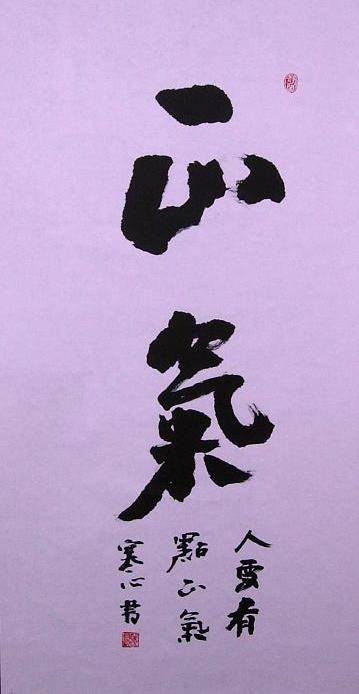 正氣
人要有
點正氣
寒心書